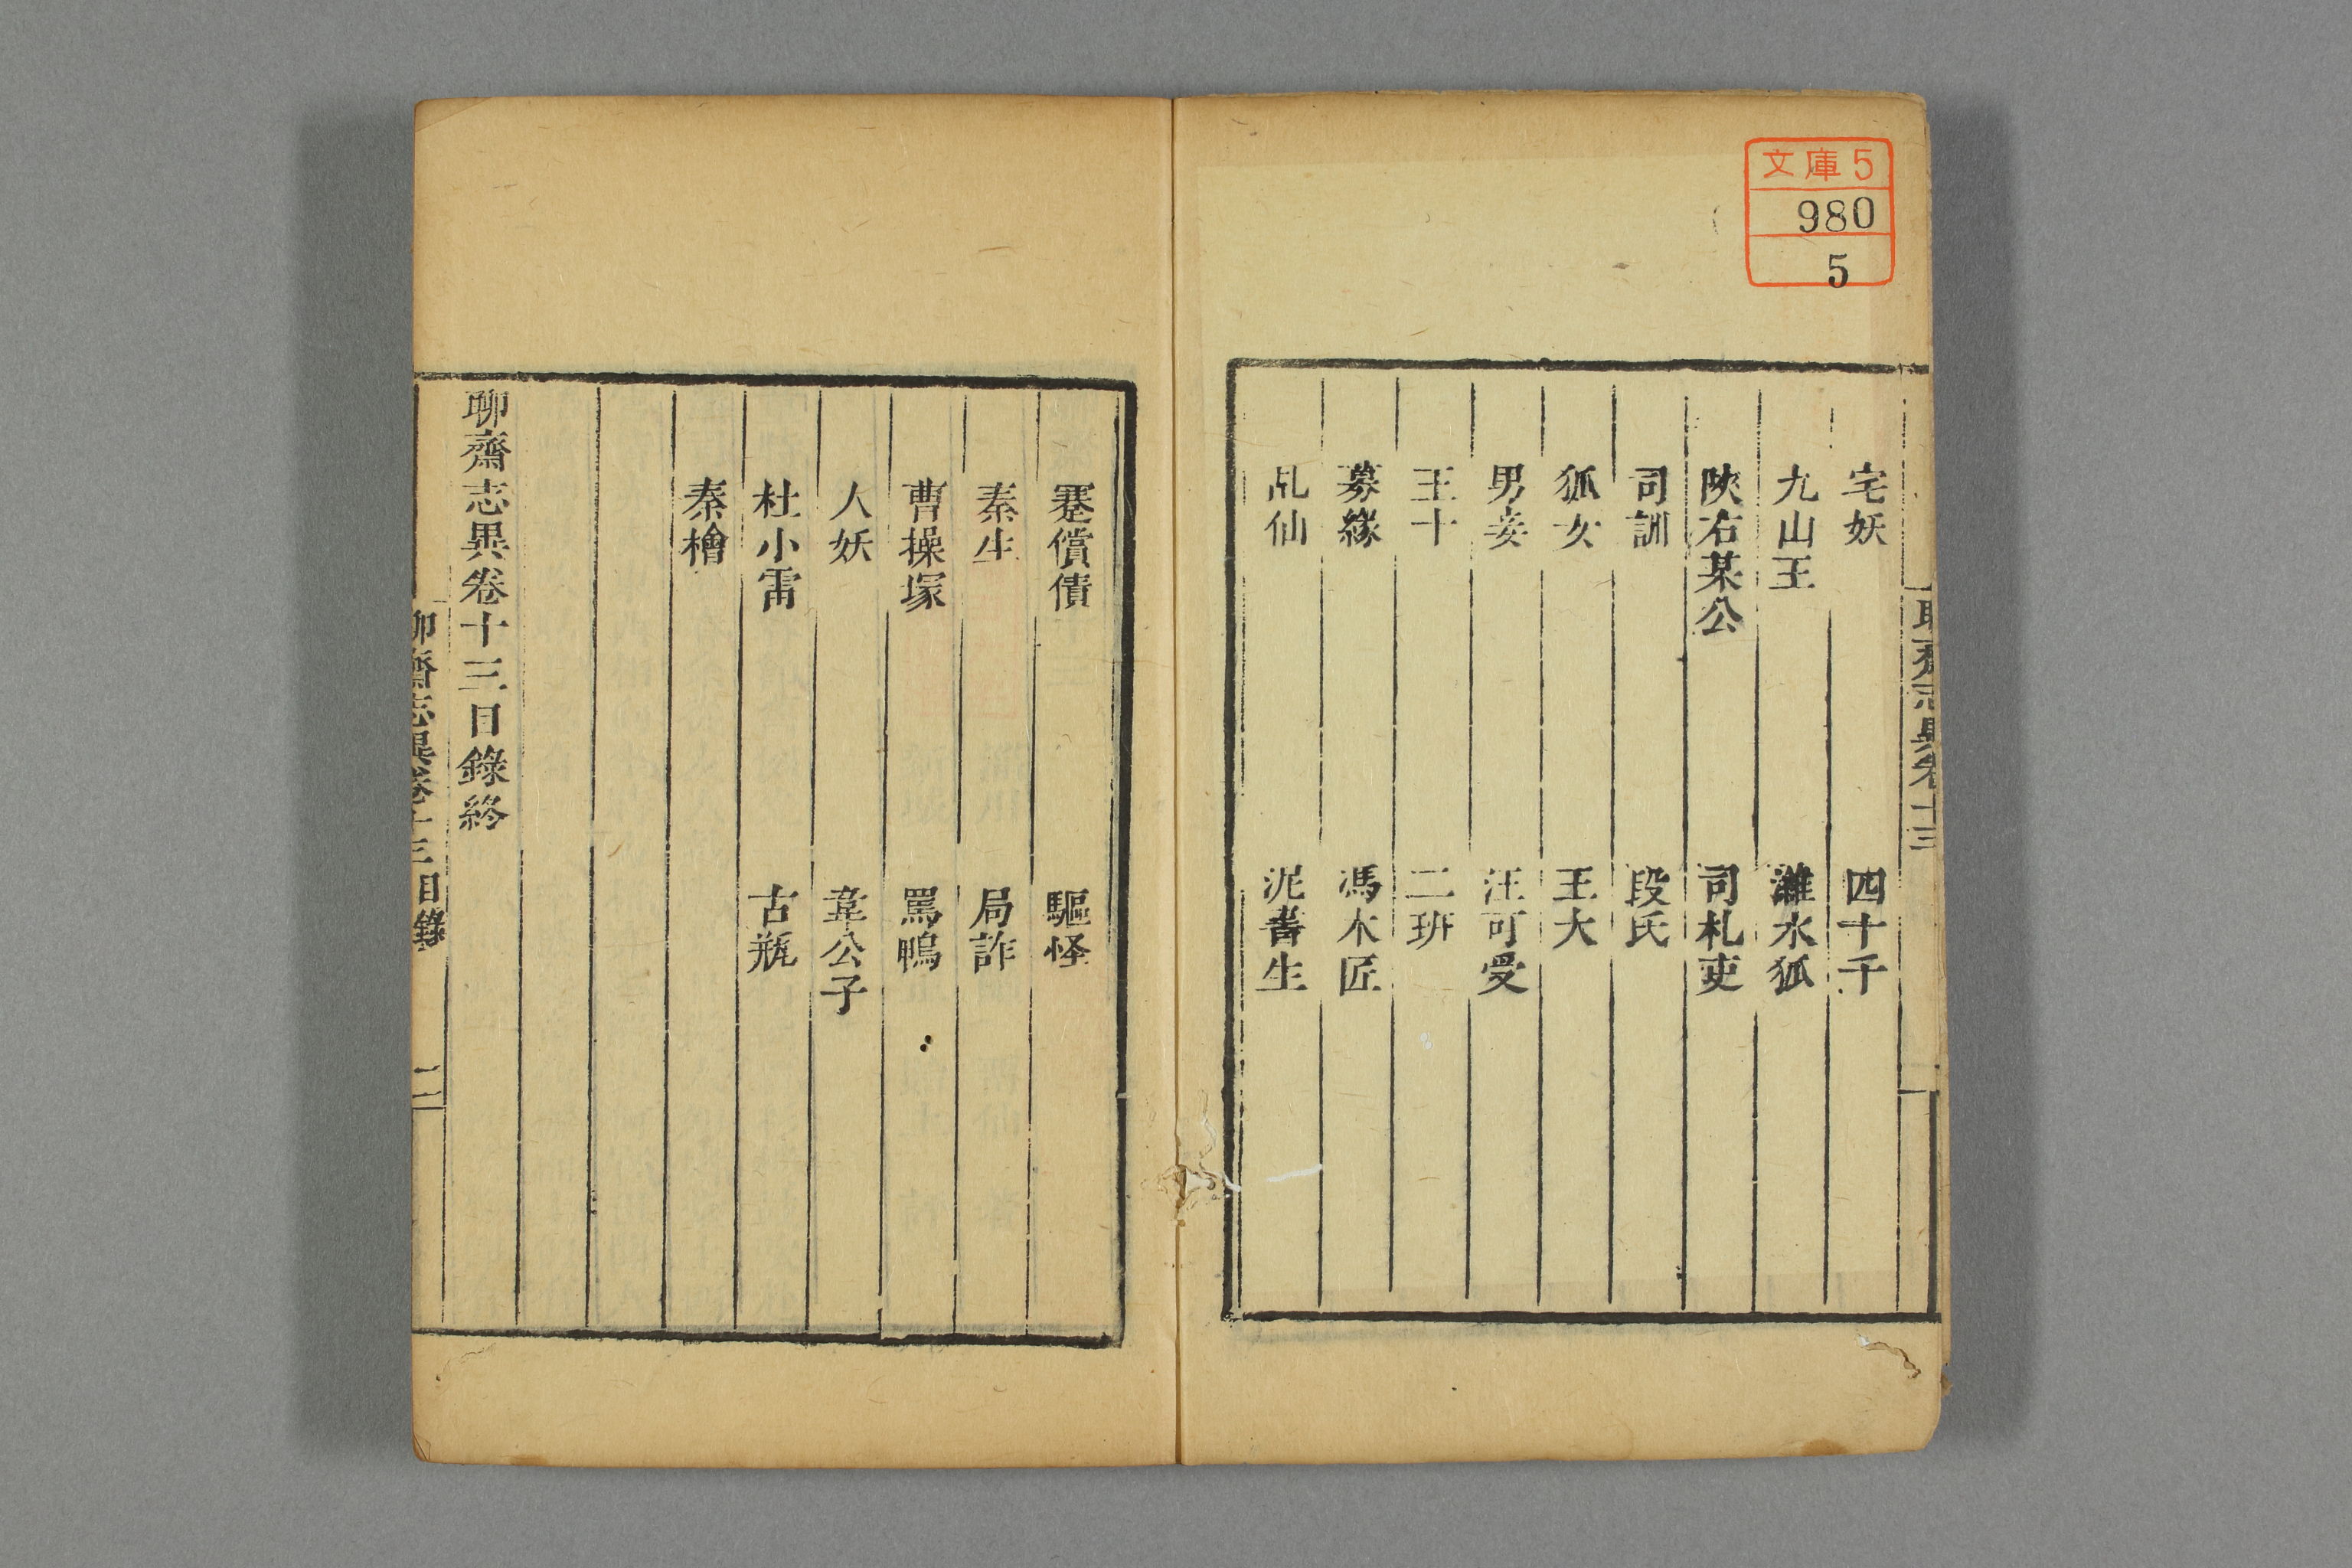 文庫5
980
5
聊齋志異卷十三
宅妖　四十千
九山王　濰水狐
陝右某公　司札吏
司訓　段氏
狐女　王大
男妾　汪可受
王十　二班
募緣　馮木匠
乩仙　泥書生
蹇償債　驅怪
秦生　局詐
曹操塚　罵鴨
人妖　韋公子
杜小雷　古瓶
秦檜
聊齋志異卷十三目錄終
聊齋志異卷十三目錄　二